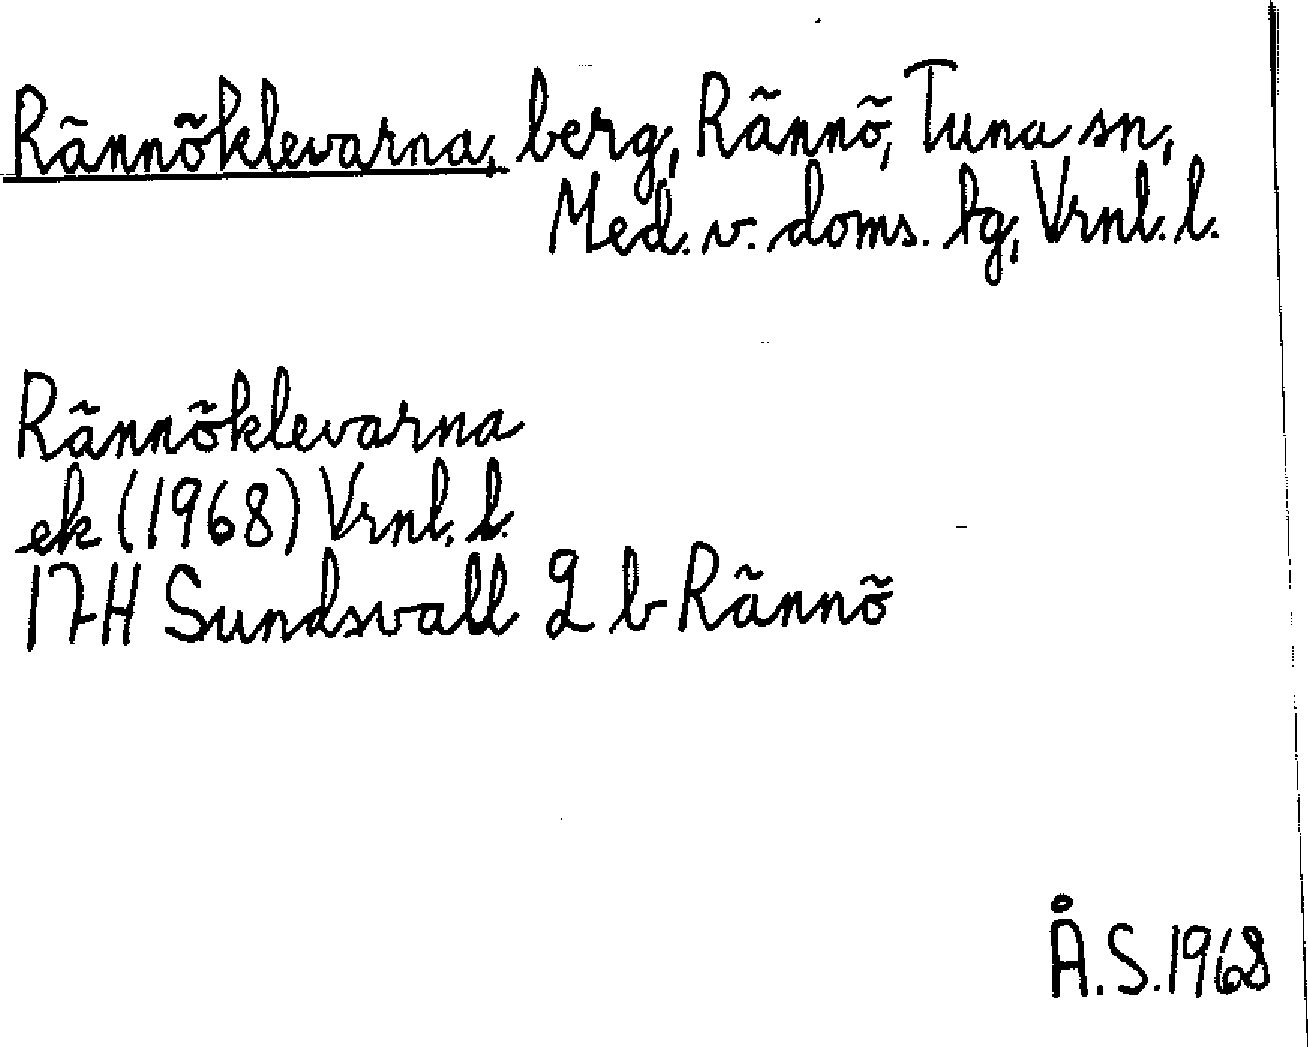 Rännöklevarna, berg, Rännö, Tuna sn,
Med. v. doms. tg, Vrnl. l.
Rännöklevarna
ek (1968) Vrnl. l.
17H Sundsvall 2 b Rännö
Å.S. 1968